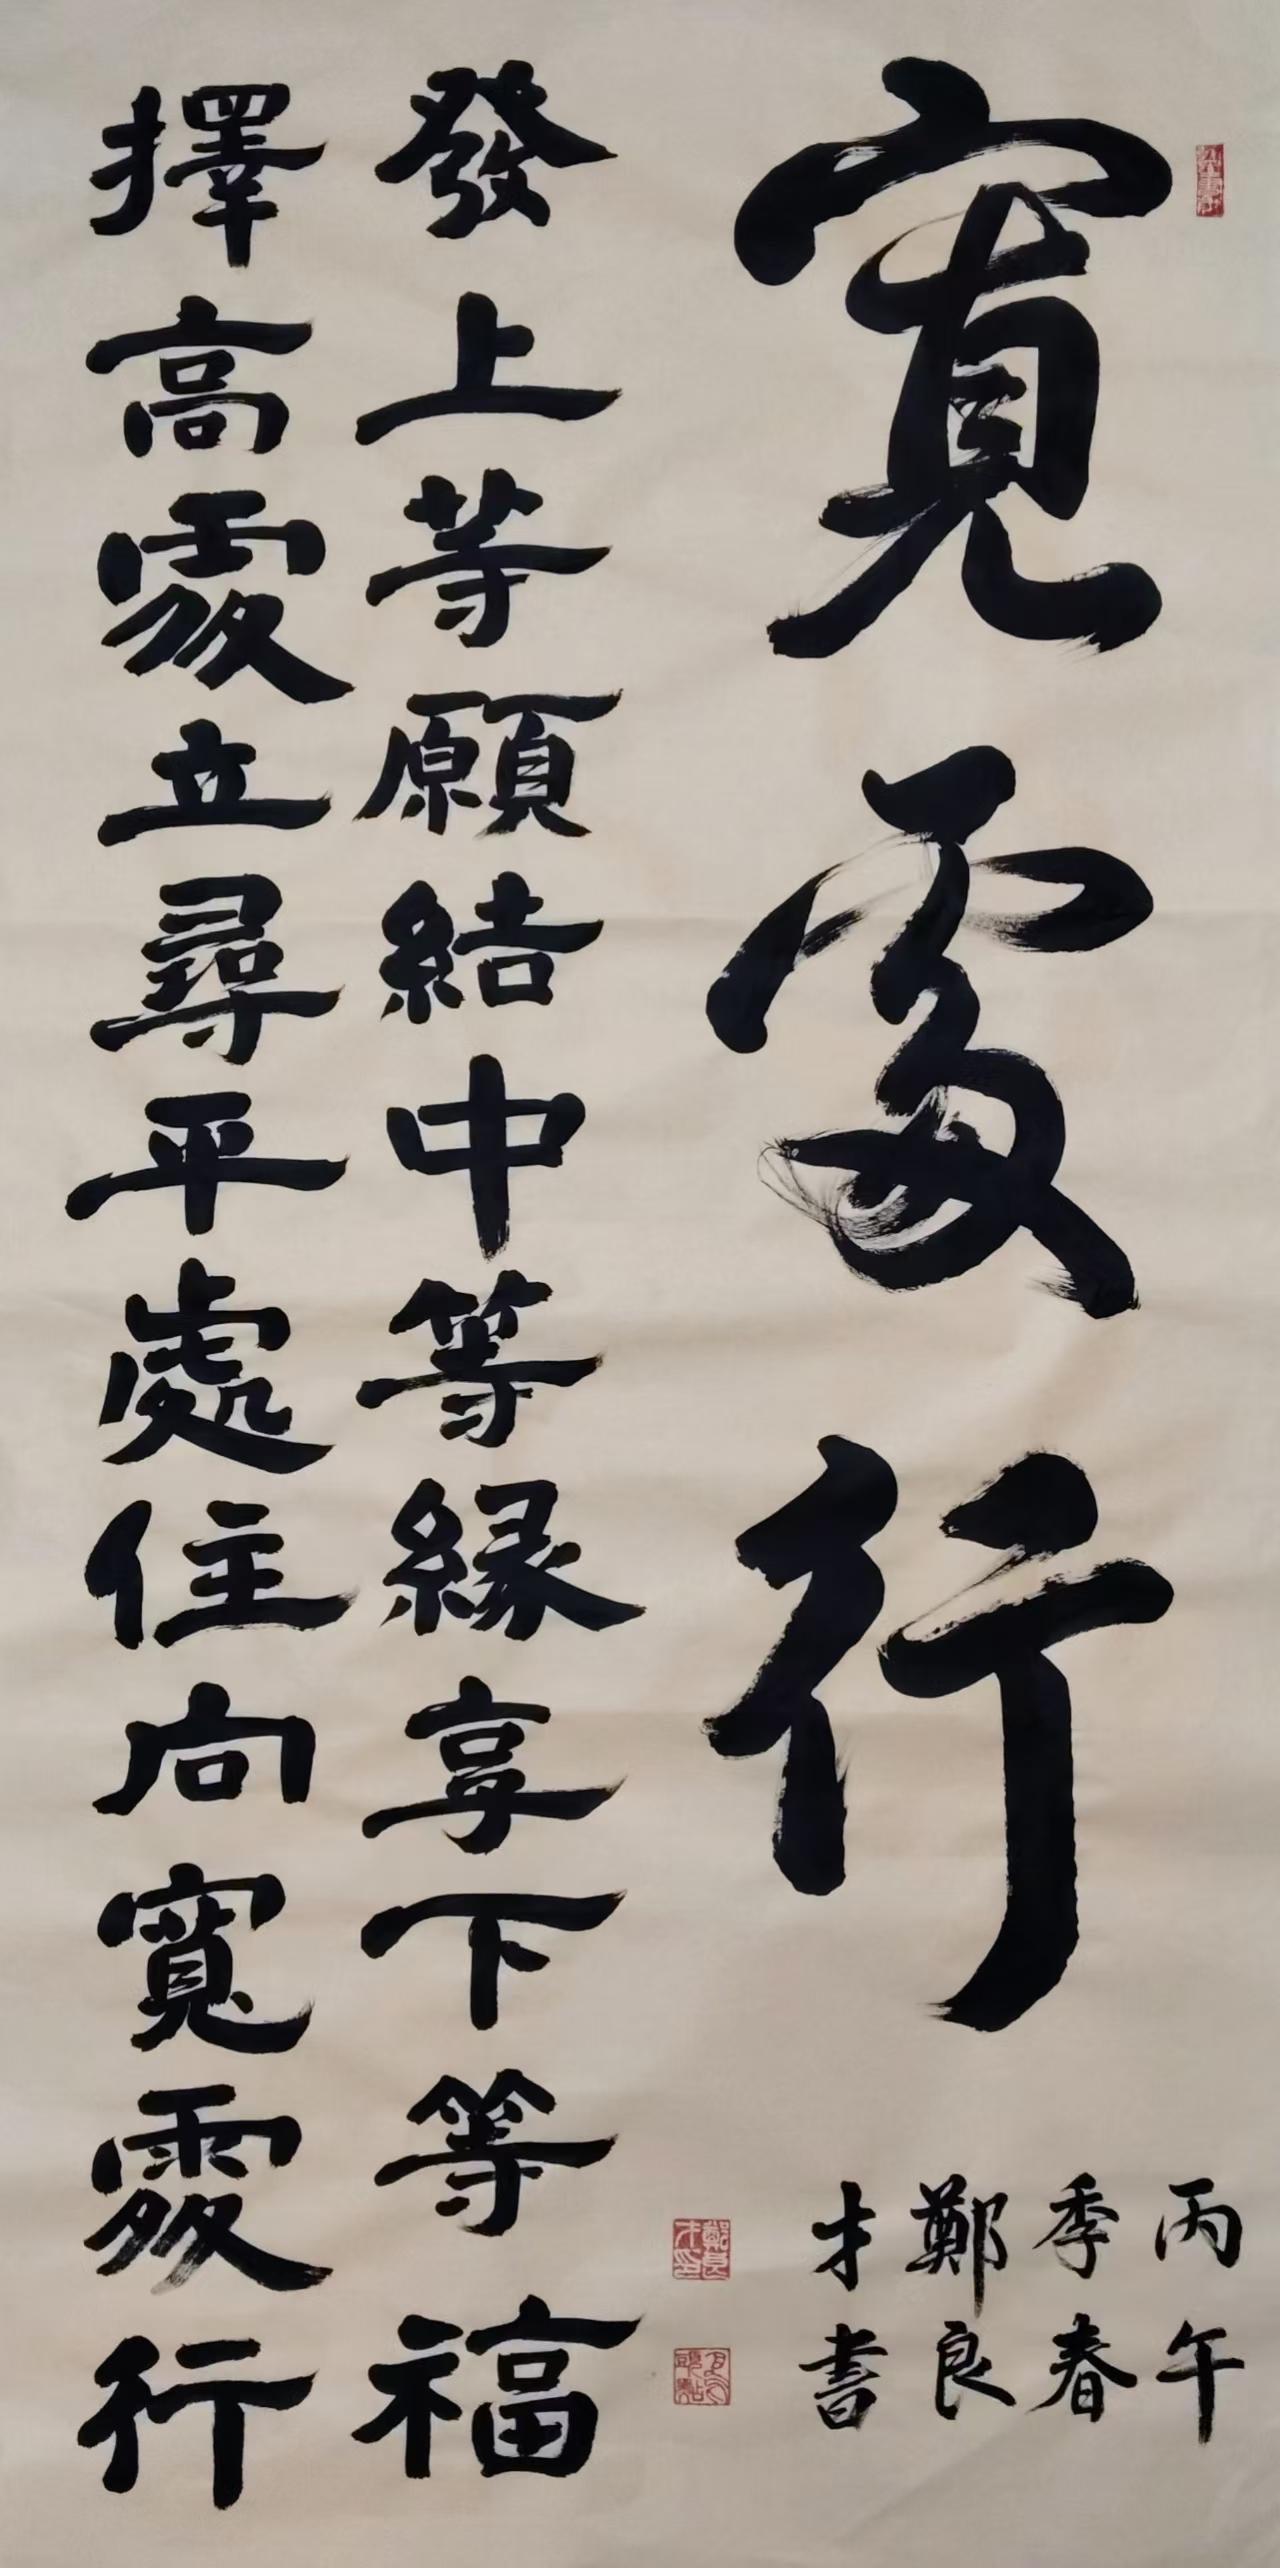 寬處行
丙午
季春
鄭良
才書
發上等願結中等緣享下等福
擇高處立尋平處住向寬處行
鄭良才印